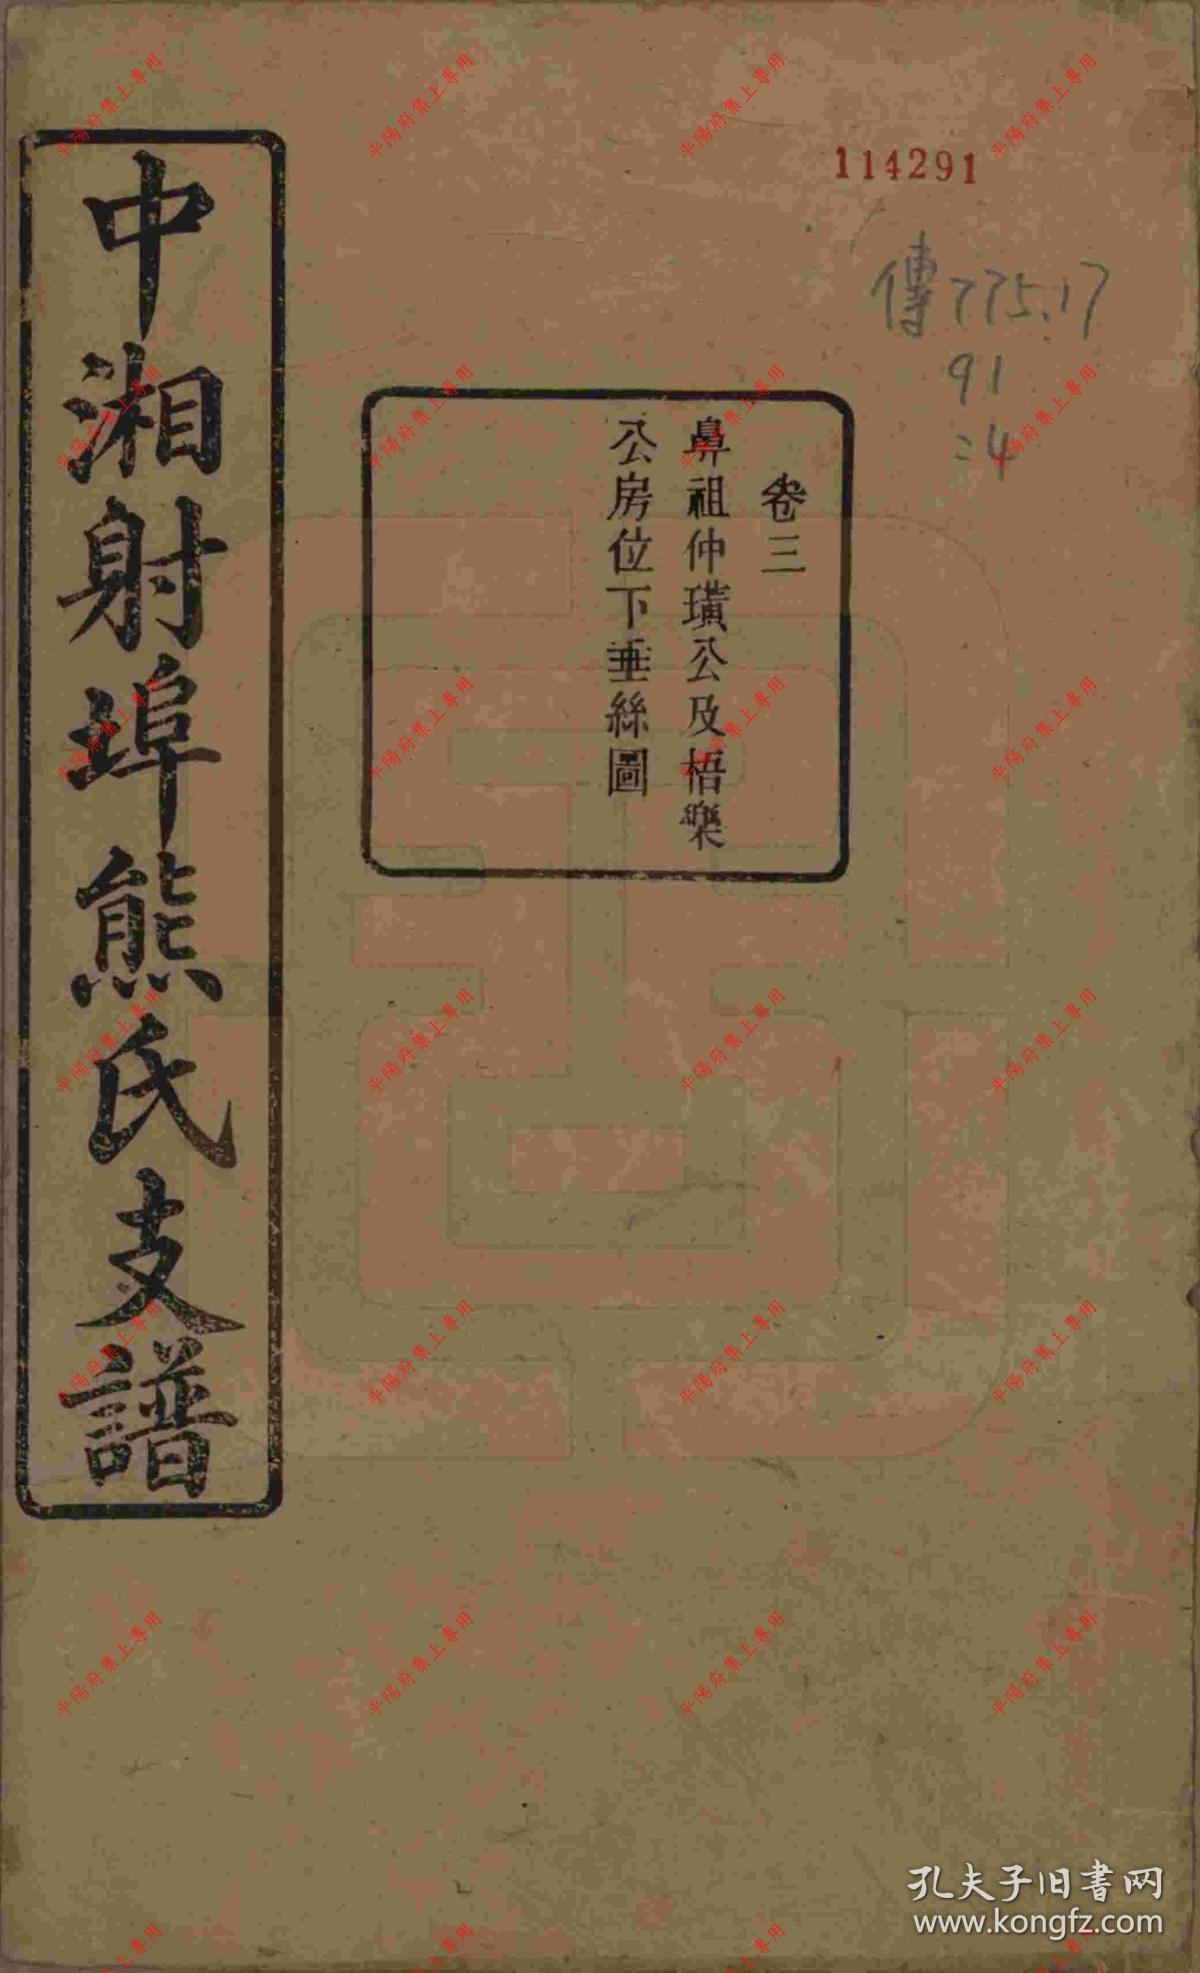 中湘射埠熊氏支譜
114291
傳775.17
91
:4
卷三
鼻祖仲璜公及梧樂
公房位下垂絲圖
平陽府集上專用
孔夫子旧書网
www.kongfz.com